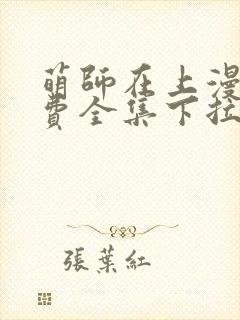 萌師在上漫
費全集下拉
張葉紅